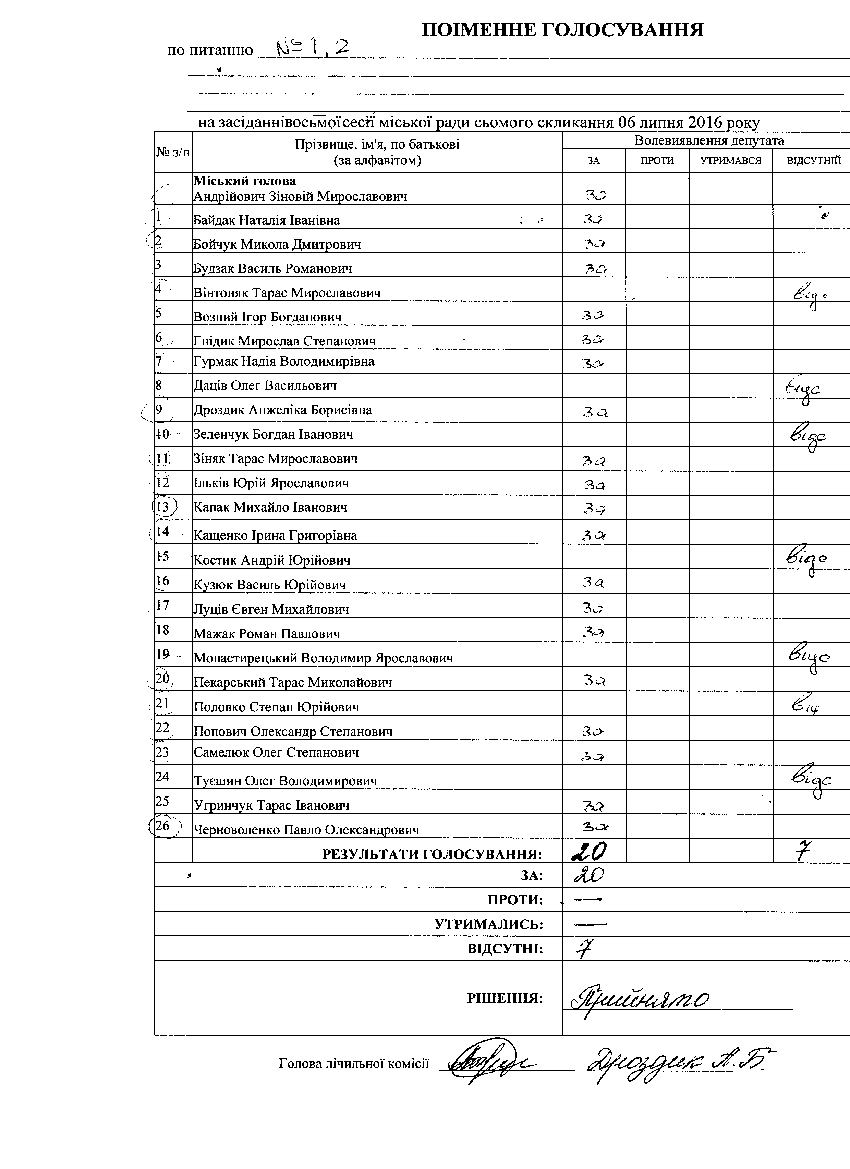 ПОІМЕННЕ ГОЛОСУВАННЯ
по питанню № 1, 2
на засіданнівосьмоїсесії міської ради сьомого скликання 06 липня 2016 року
№ з/п Прізвище, ім'я, по батькові (за алфавітом) Волевиявлення депутата
ЗА ПРОТИ УТРИМАВСЯ ВІДСУТНІЙ
Міський голова
Андрійович Зіновій Мирославович за
1 Байдак Наталія Іванівна за
2 Бойчук Микола Дмитрович за
3 Будзак Василь Романович за
4 Вінтоняк Тарас Мирославович відс
5 Возний Ігор Богданович за
6 Гнідик Мирослав Степанович за
7 Гурмак Надія Володимирівна за
8 Даців Олег Васильович відс
9 Дроздик Анжеліка Борисівна за
10 Зеленчук Богдан Іванович відс
11 Зіняк Тарас Мирославович за
12 Ільків Юрій Ярославович за
13 Капак Михайло Іванович за
14 Кащенко Ірина Григорівна за
15 Костик Андрій Юрійович відс
16 Кузюк Василь Юрійович за
17 Луців Євген Михайлович за
18 Мажак Роман Павлович за
19 Монастирецький Володимир Ярославович відс
20 Пекарський Тарас Миколайович за
21 Половко Степан Юрійович від
22 Попович Олександр Степанович за
23 Самелюк Олег Степанович за
24 Туєшин Олег Володимирович відс
25 Угринчук Тарас Іванович за
26 Черноволенко Павло Олександрович за
РЕЗУЛЬТАТИ ГОЛОСУВАННЯ: 20 7
ЗА: 20
ПРОТИ: —
УТРИМАЛИСЬ: —
ВІДСУТНІ: 7
РІШЕННЯ: Прийнято
Голова лічильної комісії Дроздик А.Б.